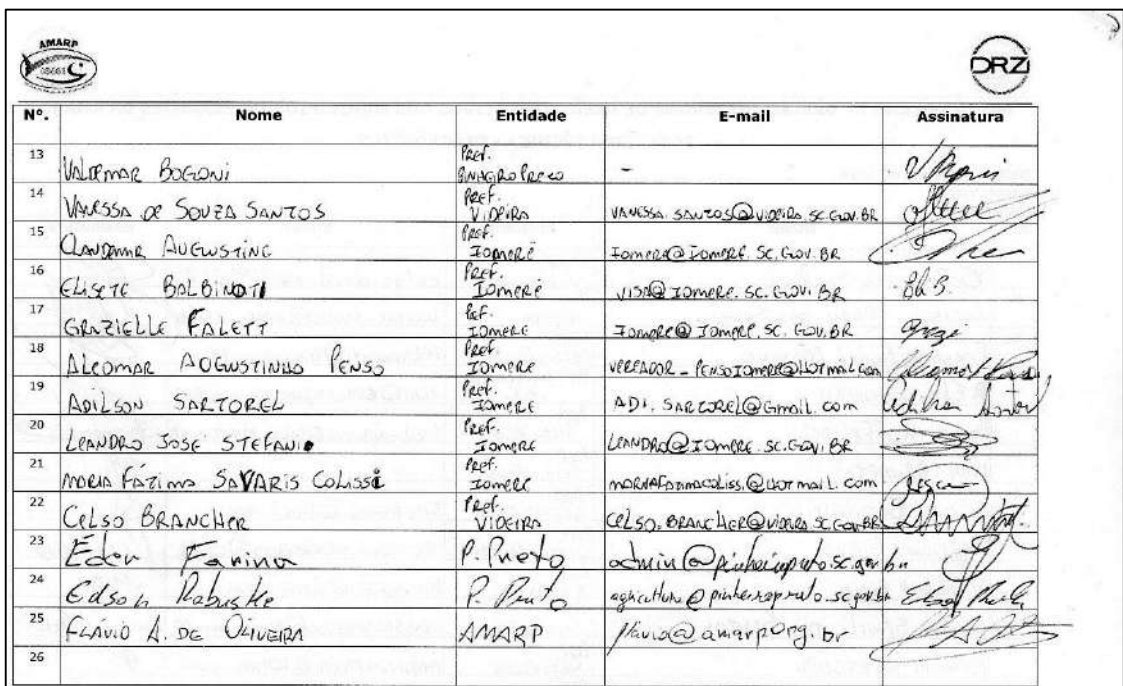 AMARP
DRZ
Nº. Nome Entidade E-mail Assinatura
13 VALDEMAR BOGONI Pref. PINHEIRO PRETO -
14 VANESSA DE SOUZA SANTOS Pref. VIDEIRA VANESSA.SANTOS@VIDEIRA.SC.GOV.BR
15 AUGUSTINE Pref. IOMERÊ IOMERE@IOMERE.SC.GOV.BR
16 ELISETE BALBINOTI Pref. IOMERÊ VISA@IOMERE.SC.GOV.BR
17 GRAZIELLE FALETT Pref. IOMERÊ IOMERE@IOMERE.SC.GOV.BR
18 ALCOMAR AUGUSTINHO PENSO Pref. IOMERE VEREADOR_PENSOIOMERE@HOTMAIL.COM
19 ADILSON SARTOREL Pref. IOMERE ADI.SARTOREL@GMAIL.COM
20 LEANDRO JOSE STEFANI Pref. IOMERE LEANDRO@IOMERE.SC.GOV.BR
21 MARIA FÁTIMA SAVARIS COLISSI Pref. IOMERE
22 CELSO BRANCHER Pref. VIDEIRA CELSO.BRANCHER@VIDEIRA.SC.GOV.BR
23 Eder Farina P. Preto admin@pinheiropreto.sc.gov.br
24 Edson Rabuske P. Preto agricultura@pinheiropreto.sc.gov.br
25 FLÁVIO A. DE OLIVEIRA AMARP flavio@amarp.org.br
26